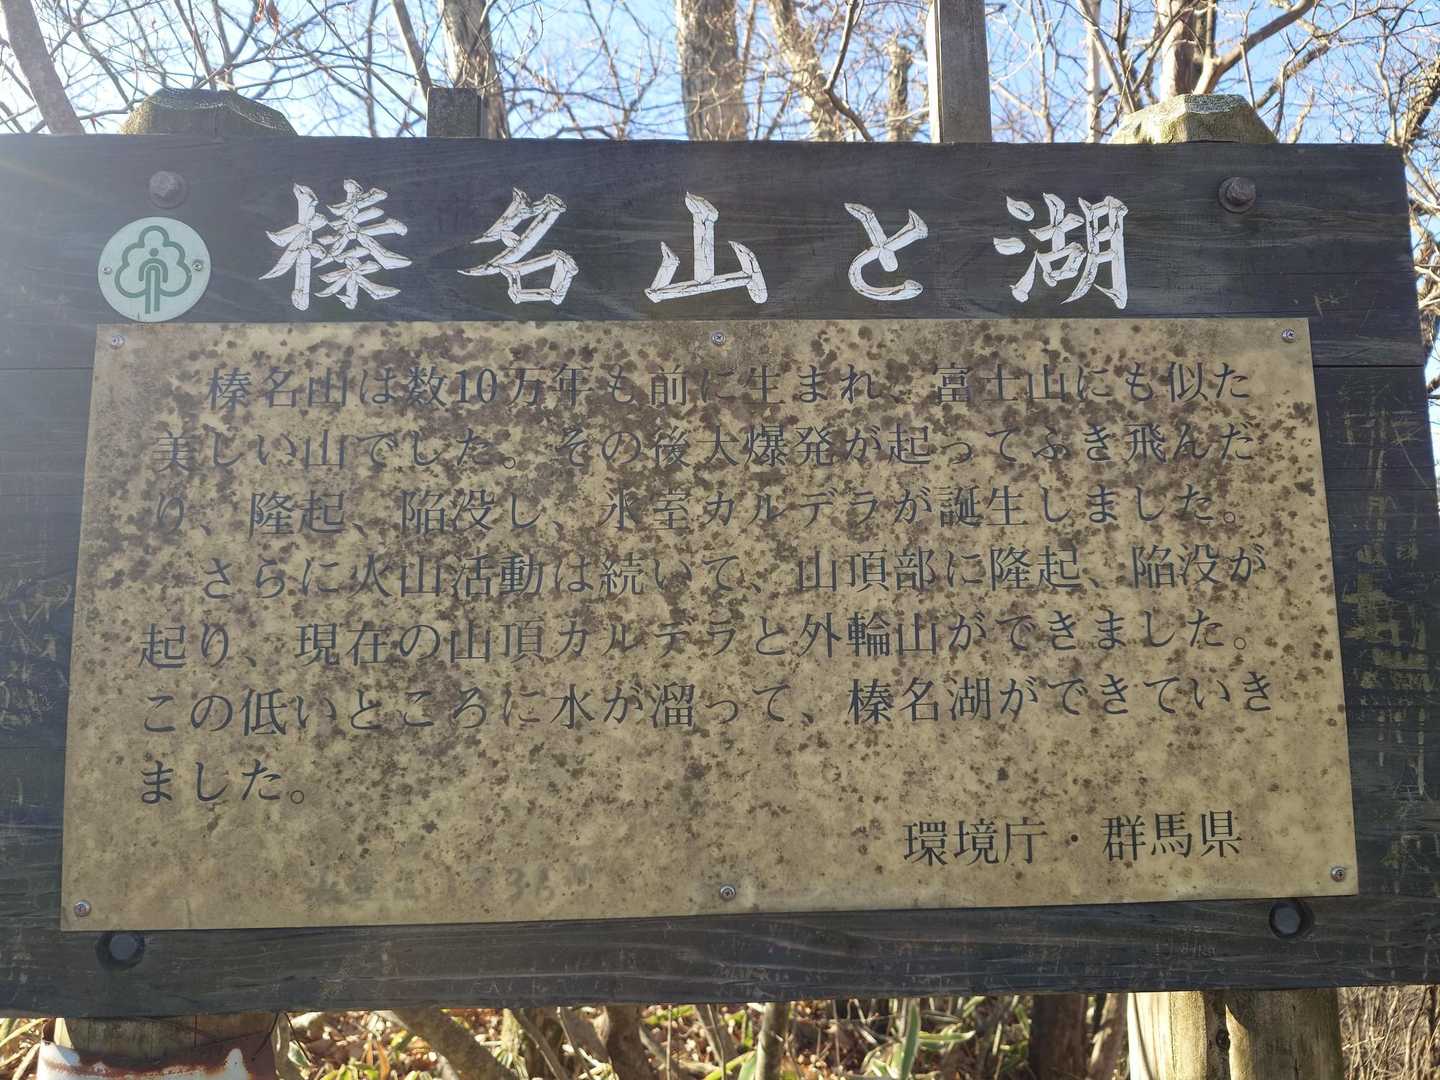 榛名山と湖
榛名山は数10万年も前に生まれ、富士山にも似た
美しい山でした。その後大爆発が起ってふき飛んだ
り、隆起、陥没し、氷室カルデラが誕生しました。
さらに火山活動は続いて、山頂部に隆起、陥没が
起り、現在の山頂カルデラと外輪山ができました。
この低いところに水が溜って、榛名湖ができていき
ました。
環境庁・群馬県